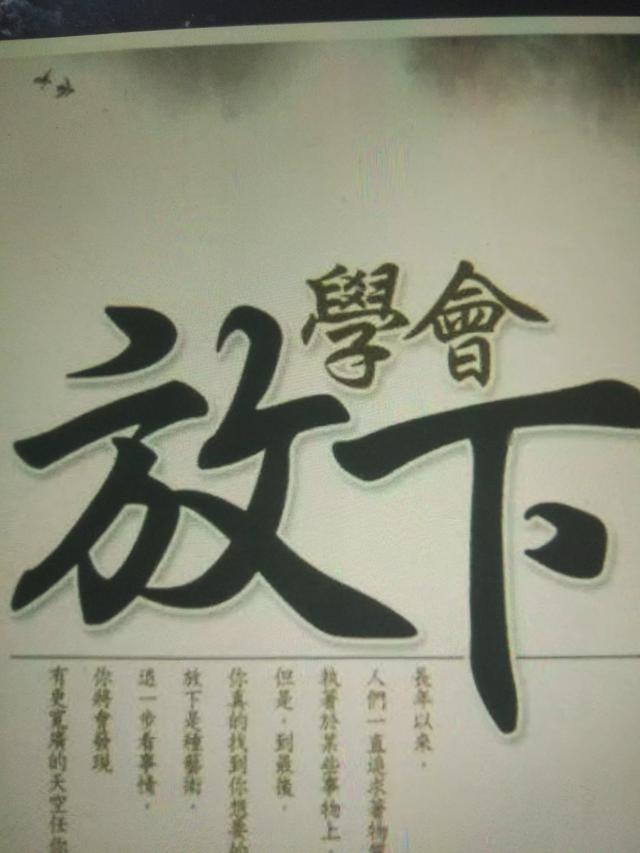 學會
放下
長年以來，
人們一直追求著物
執著於某些事物上，
但是，到最後，
你真的找到你想要的
放下是種藝術，
退一步看事情，
你將會發現
有更寬廣的天空任你